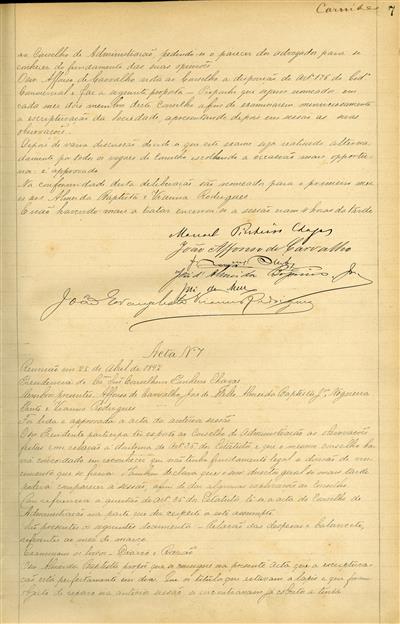 7
ao Conselho de Administração, pedindo-se o parecer dos advogados para se
conhecer do fundamento das suas opiniões
O sr. Affonso de Carvalho cita ao Conselho a disposição do artº 176 do Codº
Commercial e faz a seguinte proposta — Proponho que sejam nomeados em
cada mez dois membros deste Conselho afim de examinarem minuciosamente
a escripturação da Sociedade, apresentando depois em sessão as suas
observações.
Depois de varia discussão decide-se que este exame seja realisado alterna-
damente por todos os vogaes do Conselho escolhendo a occasião mais opportu-
na: é approvada
Na conformidade desta deliberação são nomeados para o primeiro mez
os srs Almeida Baptista e Vianna Rodrigues
E não havendo mais a tratar encerrou-se a sessão eram horas da tarde
Manuel Pinheiro Chagas
João Affonso de Carvalho
José d'Almeida Jor
João Evangelista Vianna Rodrigues
Acta Nº 7
Reunião em 22 de Abril de 1892
Presidencia do Exmo Snr Conselheiro Pinheiro Chagas
Membros presentes: Affonso de Carvalho, José de Mello, Almeida Baptista Jr, Nogueira
Pinto e Vianna Rodrigues
Foi lida e approvada a acta da anterior sessão
O sr Presidente participa ter exposto ao Conselho de Administração as observações
feitas com relação á doutrina do artº 35 do Estatuto, e que o mesmo conselho ha-
via concordado em reconhecer que não tinha fundamento legal a divisão de ven-
cimento que se fazia. Tambem declarou que o snr director geral só mais tarde
poderá comparecer á sessão, afim de dar algumas explicações ao Conselho
Com referencia a questão do artº 35 do Estatuto lê-se a acta do Conselho de
Administração na parte que diz respeito a este assumpto
São presentes os seguintes documentos — Relação das despezas e balancete,
referentes ao mez de março
Examinam os livros — Diario e Razão
O snr Almeida Baptista propõe que se consigne na presente acta que a escriptura-
ção está perfeitamente em dia. Que os titulos que estavam a lapis e que foram
objecto de reparo na anterior sessão, se encontravam já cobertos a tinta